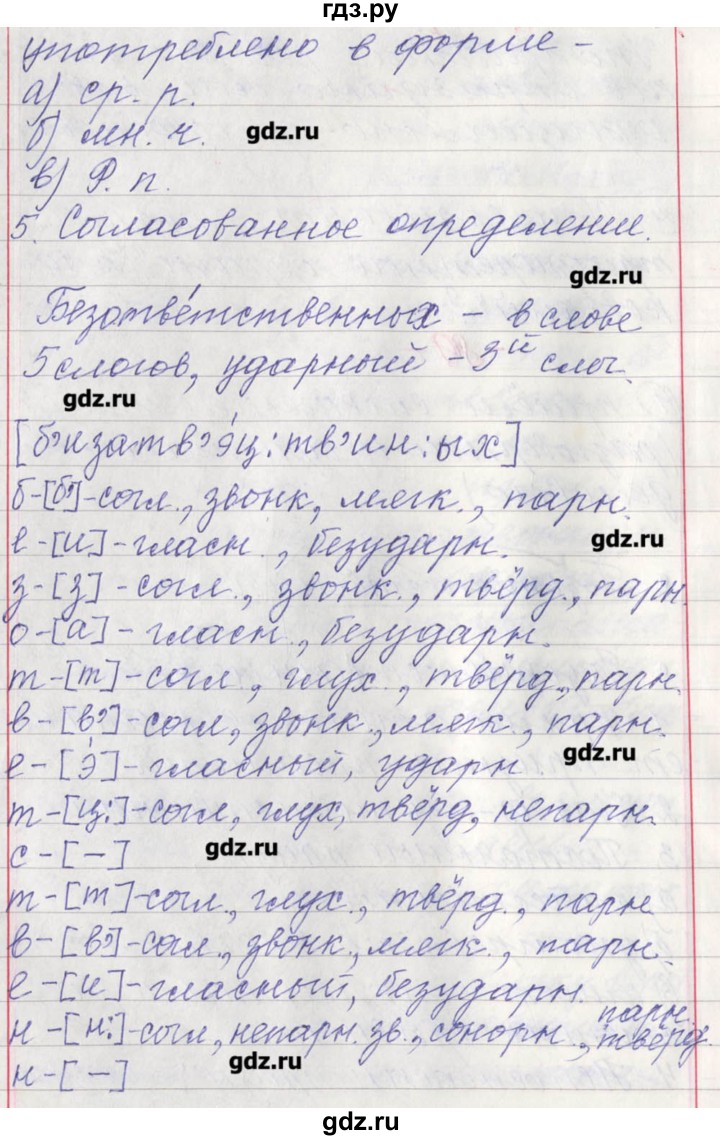 гдз.ру
употреблено в форме -
а) ср. р.
б) мн. ч. gdz.ru
в) Р. п.
5. Согласованное определение.
gdz.ru
Безотве́тственных - в слове
5 слогов, ударный - 3ий слог.
gdz.ru
[б'изатв'э́ц:тв'ин:ых]
б-[б']-согл., звонк, мягк., парн.
е-[и]-гласн., безударн. gdz.ru
з-[з]-согл., звонк., твёрд., парн.
о-[а]-гласн., безударн.
т-[т]-согл., глух., твёрд., парн.
в-[в']-согл, звонк., мягк., парн.
е-[э́]-гласный, ударн. gdz.ru
т-[ц:]-согл, глух, твёрд., непарн.
с-[-] gdz.ru
т-[т]-согл., глух., твёрд., парн
в-[в']-согл., звонк., мягк., парн.
е-[и]-гласный, безударн
н-[н:]-согл, непарн. зв., сонорн., парн. твёрд.
н-[-] gdz.ru
gdz.ru